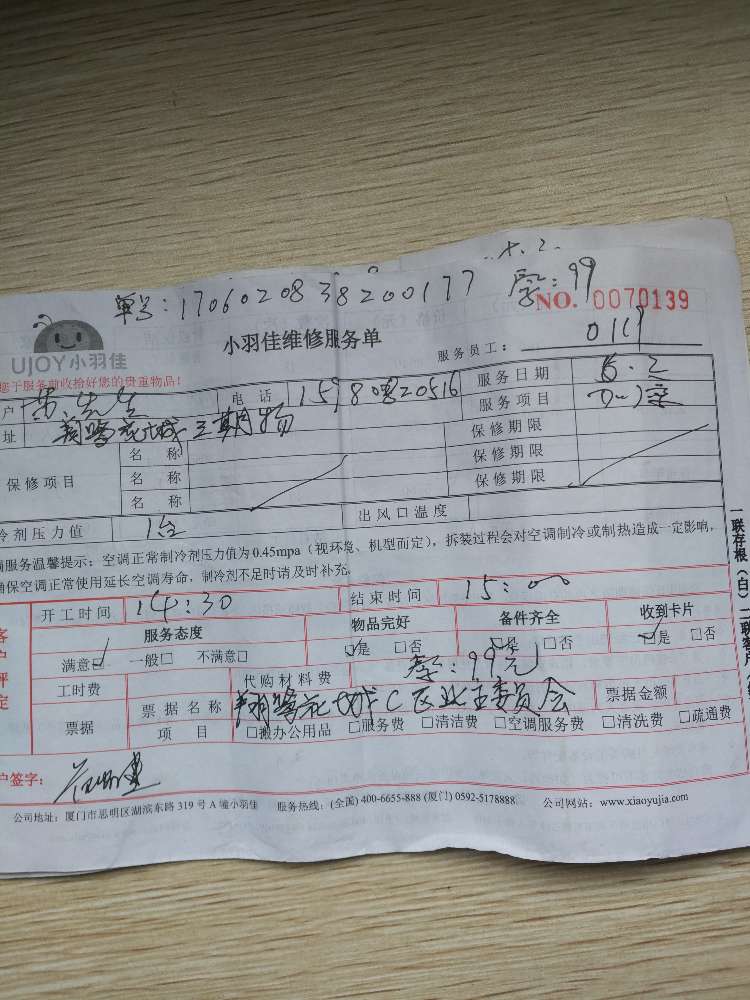 单号：1706020838200177
99
NO. 0070139
UJOY小羽佳
小羽佳维修服务单
服务员工：
您于服务前收拾好您的贵重物品！
户 黄先生 电 话 服务日期 6.2
址 翔鹭花城三期 服务项目
保修项目 名 称 保修期限
名 称 保修期限
名 称 保修期限
冷剂压力值 1台 出风口温度
调服务温馨提示：空调正常制冷剂压力值为0.45mpa（视环境、机型而定），拆装过程会对空调制冷或制热造成一定影响，
确保空调正常使用延长空调寿命，制冷剂不足时请及时补充。
开工时间 14:30 结束时间 15:00
客户评定
服务态度 物品完好 备件齐全 收到卡片
满意□ 一般□ 不满意□ □是 □否 □是 □否 □是 □否
工时费 代购材料费 99元
票据 票据名称 翔鹭花城C区业主委员会 票据金额
项 目 □办公用品 □服务费 □清洁费 □空调服务费 □清洗费 □疏通费
户签字：
公司地址：厦门市思明区湖滨东路319号A幢小羽佳 服务热线：(全国) 400-6655-888 (厦门) 0592-5178888 公司网站：www.xiaoyujia.com
一联存根（白）二联客户